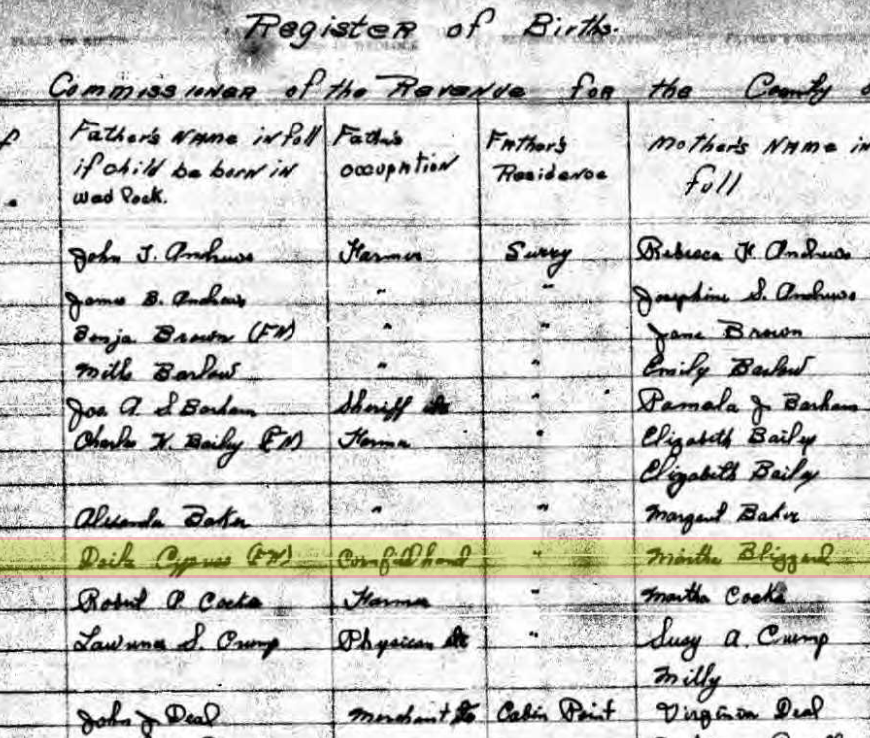 Register of Births.
Commissioner of the Revenue for the County
Father's Name in full if child be born in wed lock. Father's occupation Father's Residence Mother's Name in full
John T. Andrews Farmer Surry Rebecca H. Andrews
James B. Andrews " " Josephine S. Andrews
Benja Brown (FN) " " Jane Brown
Mills Barlow " " Emily Barlow
Jos A. S Barham Sheriff " Pamala J Barham
Charles W. Baily (FN) Farmer " Elizabeth Bailey
Elizabeth Bailey
Baker " " Margaret Baker
Cypress (FN) Cornfield hand " Martha Blizzard
Robert P. Cocke Farmer " Martha Cocke
S. Crump Physician " Susy A. Crump
Milly
John J. Deal Merchant Cabin Point Virginia Deal